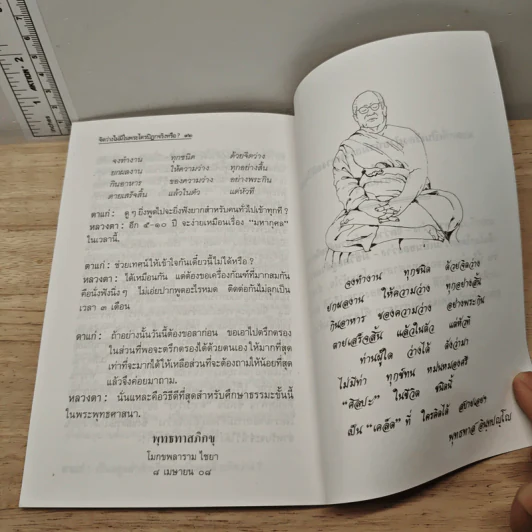 จิตว่างไม่มีในพระไตรปิฎกจริงหรือ? ๙๒
จงทำงาน ทุกชนิด ด้วยจิตว่าง
ยกผลงาน ให้ความว่าง ทุกอย่างสิ้น
กินอาหาร ของความว่าง อย่างพระกิน
ตายเสร็จสิ้น แล้วในตัว แต่หัวที
ตาแก่: ดู ๆ ยิ่งพูดไปจะยิ่งฟังยากสำหรับคนทั่วไปเข้าทุกที ?
หลวงตา: อีก ๕-๑๐ ปี จะง่ายเหมือนเรื่อง "มหากุศล"
ในเวลานี้.
ตาแก่: ช่วยเทศน์ให้เข้าใจกันเดี๋ยวนี้ไม่ได้หรือ ?
หลวงตา: ได้เหมือนกัน แต่ต้องขอเครื่องกัณฑ์ที่มากสมกัน
คือนั่งฟังนิ่ง ๆ ไม่เอ่ยปากพูดอะไรหมด ติดต่อกันไม่ลุกเป็น
เวลา ๓ เดือน
ตาแก่: ถ้าอย่างนั้นวันนี้ต้องขอลาก่อน ขอเอาไปตรึกตรอง
ในส่วนที่พอจะตรึกตรองได้ด้วยตนเอง ให้มากที่สุด
เท่าที่จะมากได้ ให้เหลือส่วนที่จะต้องถามให้น้อยที่สุด
แล้วจึงค่อยมาถาม.
หลวงตา: นั่นแหละคือวิธีดีที่สุดสำหรับศึกษาธรรมะชั้นนี้
ในพระพุทธศาสนา.
พุทธทาสภิกขุ
โมกขพลาราม ไชยา
๘ เมษายน ๐๘
จงทำงาน ทุกชนิด ด้วยจิตว่าง
ยกผลงาน ให้ความว่าง ทุกอย่างสิ้น
กินอาหาร ของความว่าง อย่างพระกิน
ตายเสร็จสิ้น แล้วในตัว แต่หัวที
ท่านผู้ใด ว่างได้ ดังว่ามา
ไม่มีท่า ทุกข์ทน หม่นหมองศรี
"ศิลปะ" ในชีวิต ชนิดนี้
เป็น "เคล็ด" ที่ ใครคิดได้ สบายเอย
พุทธทาส อินฺทปญฺโญ